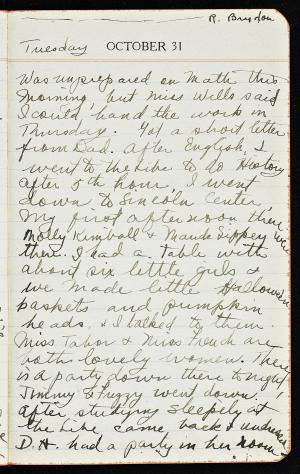 R. Brydon
Tuesday OCTOBER 31
Was unprepared on Math this
morning, but Miss Wells said
I could hand the work in
Thursday. Got a short letter
from Dad. After English, I
went to the Libe to do History
after 5th hour. I went
down to Lincoln Center,
My first afternoon there.
Molly Kimball & Maude Sippey were
there. I had a table with
about six little girls &
we made little Halloween
baskets and pumpkin
heads, & I talked to them.
Miss Tabor & Miss French are
both lovely women. There
is a party down there tonight,
Jimmy & Fuzzy went down.
After studying sleepily at
the Libe came back &
D.H. had a party in her room.